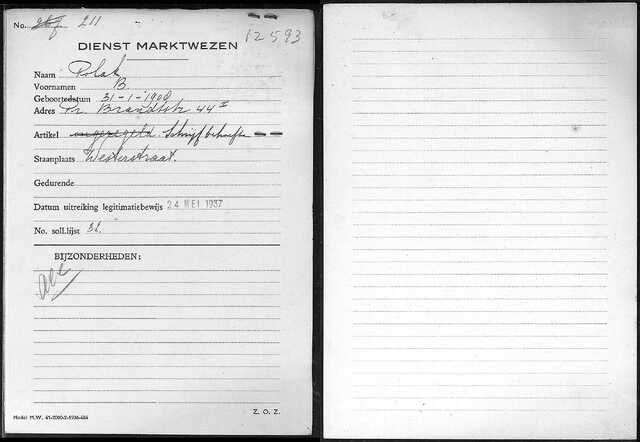 No. 211
12593
DIENST MARKTWEZEN
Naam Polak
Voornamen B.
Geboortedatum 31-1-1900
Adres Pr. Brandtstr 44 I
Artikel ongeregeld. Schrijfbehoefte
Staanplaats Westerstraat.
Gedurende
Datum uitreiking legitimatiebewijs 24 MEI 1937
No. soll.lijst 32.
BIJZONDERHEDEN:
Model M.W. 41-2000-2-1936-654
Z. O. Z.